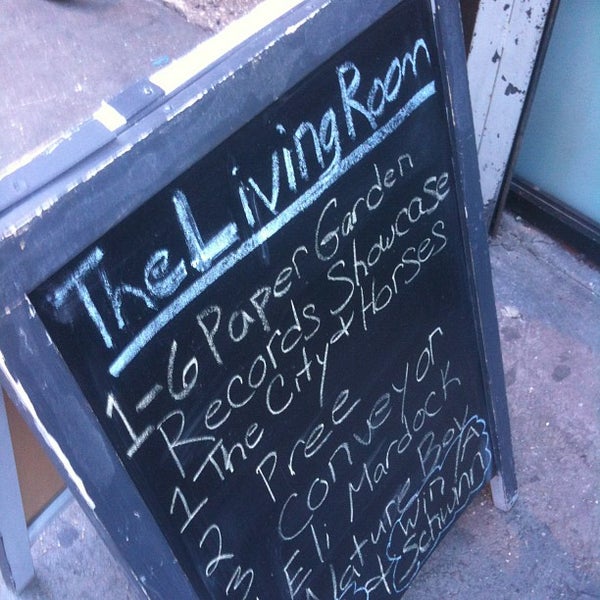 The Living Room
1-6 Paper Garden
Records Showcase
1 The City & Horses
2 Pree
3 Conveyor
Eli Mardock
Nature Boy
Win A
Schwinn